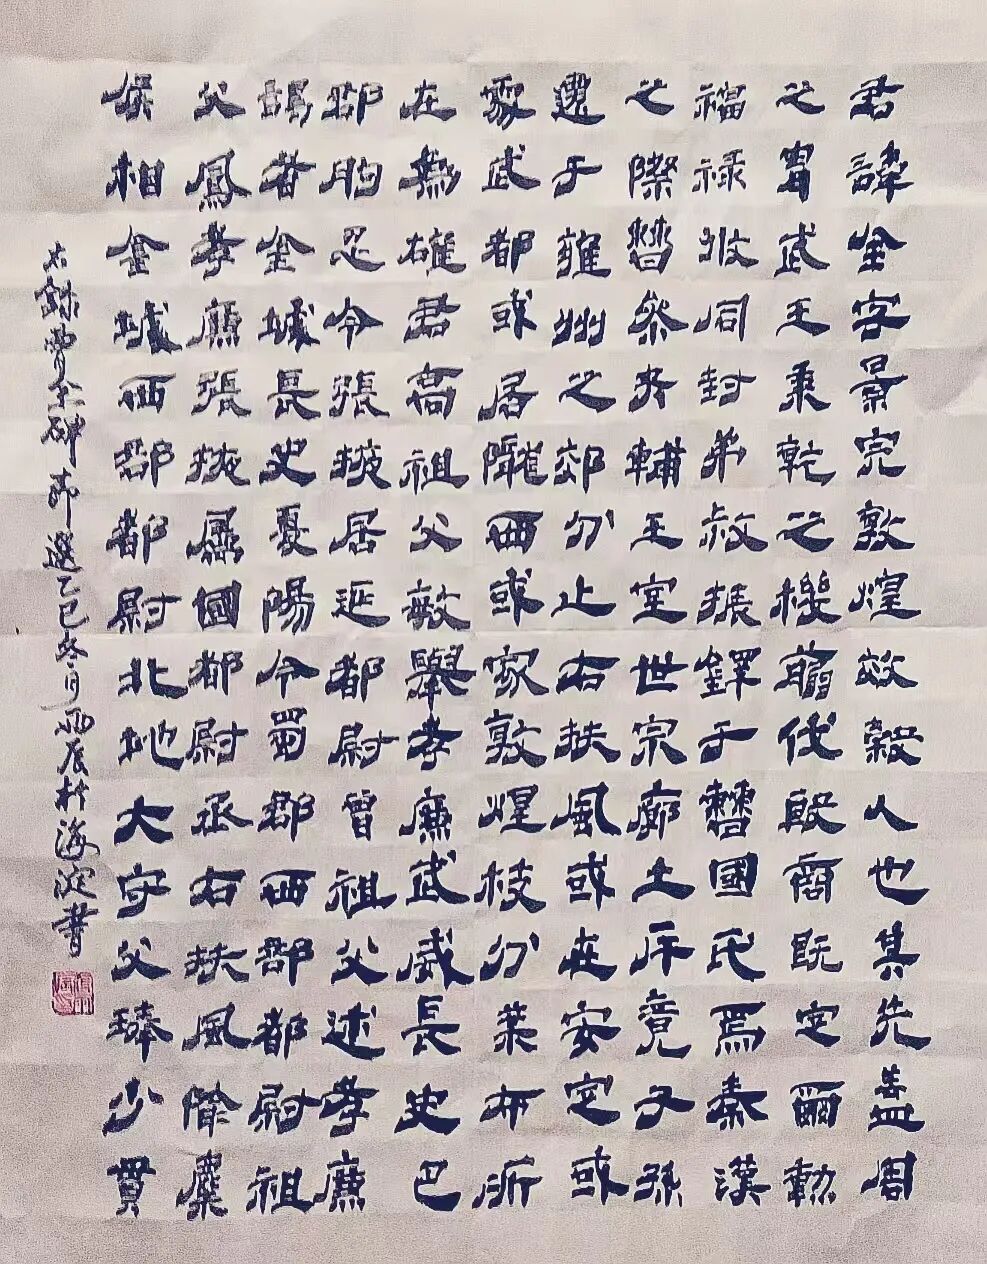 君諱全字景完敦煌效穀人也其先蓋周
之胄武王秉乾之機翦伐殷商既定爾勳
福祿攸同封弟叔振鐸于曹國氏焉秦漢
之際曹參夾輔王室世宗廓土斥竟子孫
遷于雍州之郊分止右扶風或在安定或
處武都或居隴西或家敦煌枝分葉布所
在為雄君高祖父敏舉孝廉武威長史巴
郡朐忍令張掖居延都尉曾祖父述孝廉
謁者金城長史夏陽令蜀郡西部都尉祖
父鳳孝廉張掖屬國都尉丞右扶風隃麋
侯相金城西部都尉北地大守父琫少貫
右錄曹全碑節選乙巳冬月丙辰於海淀書